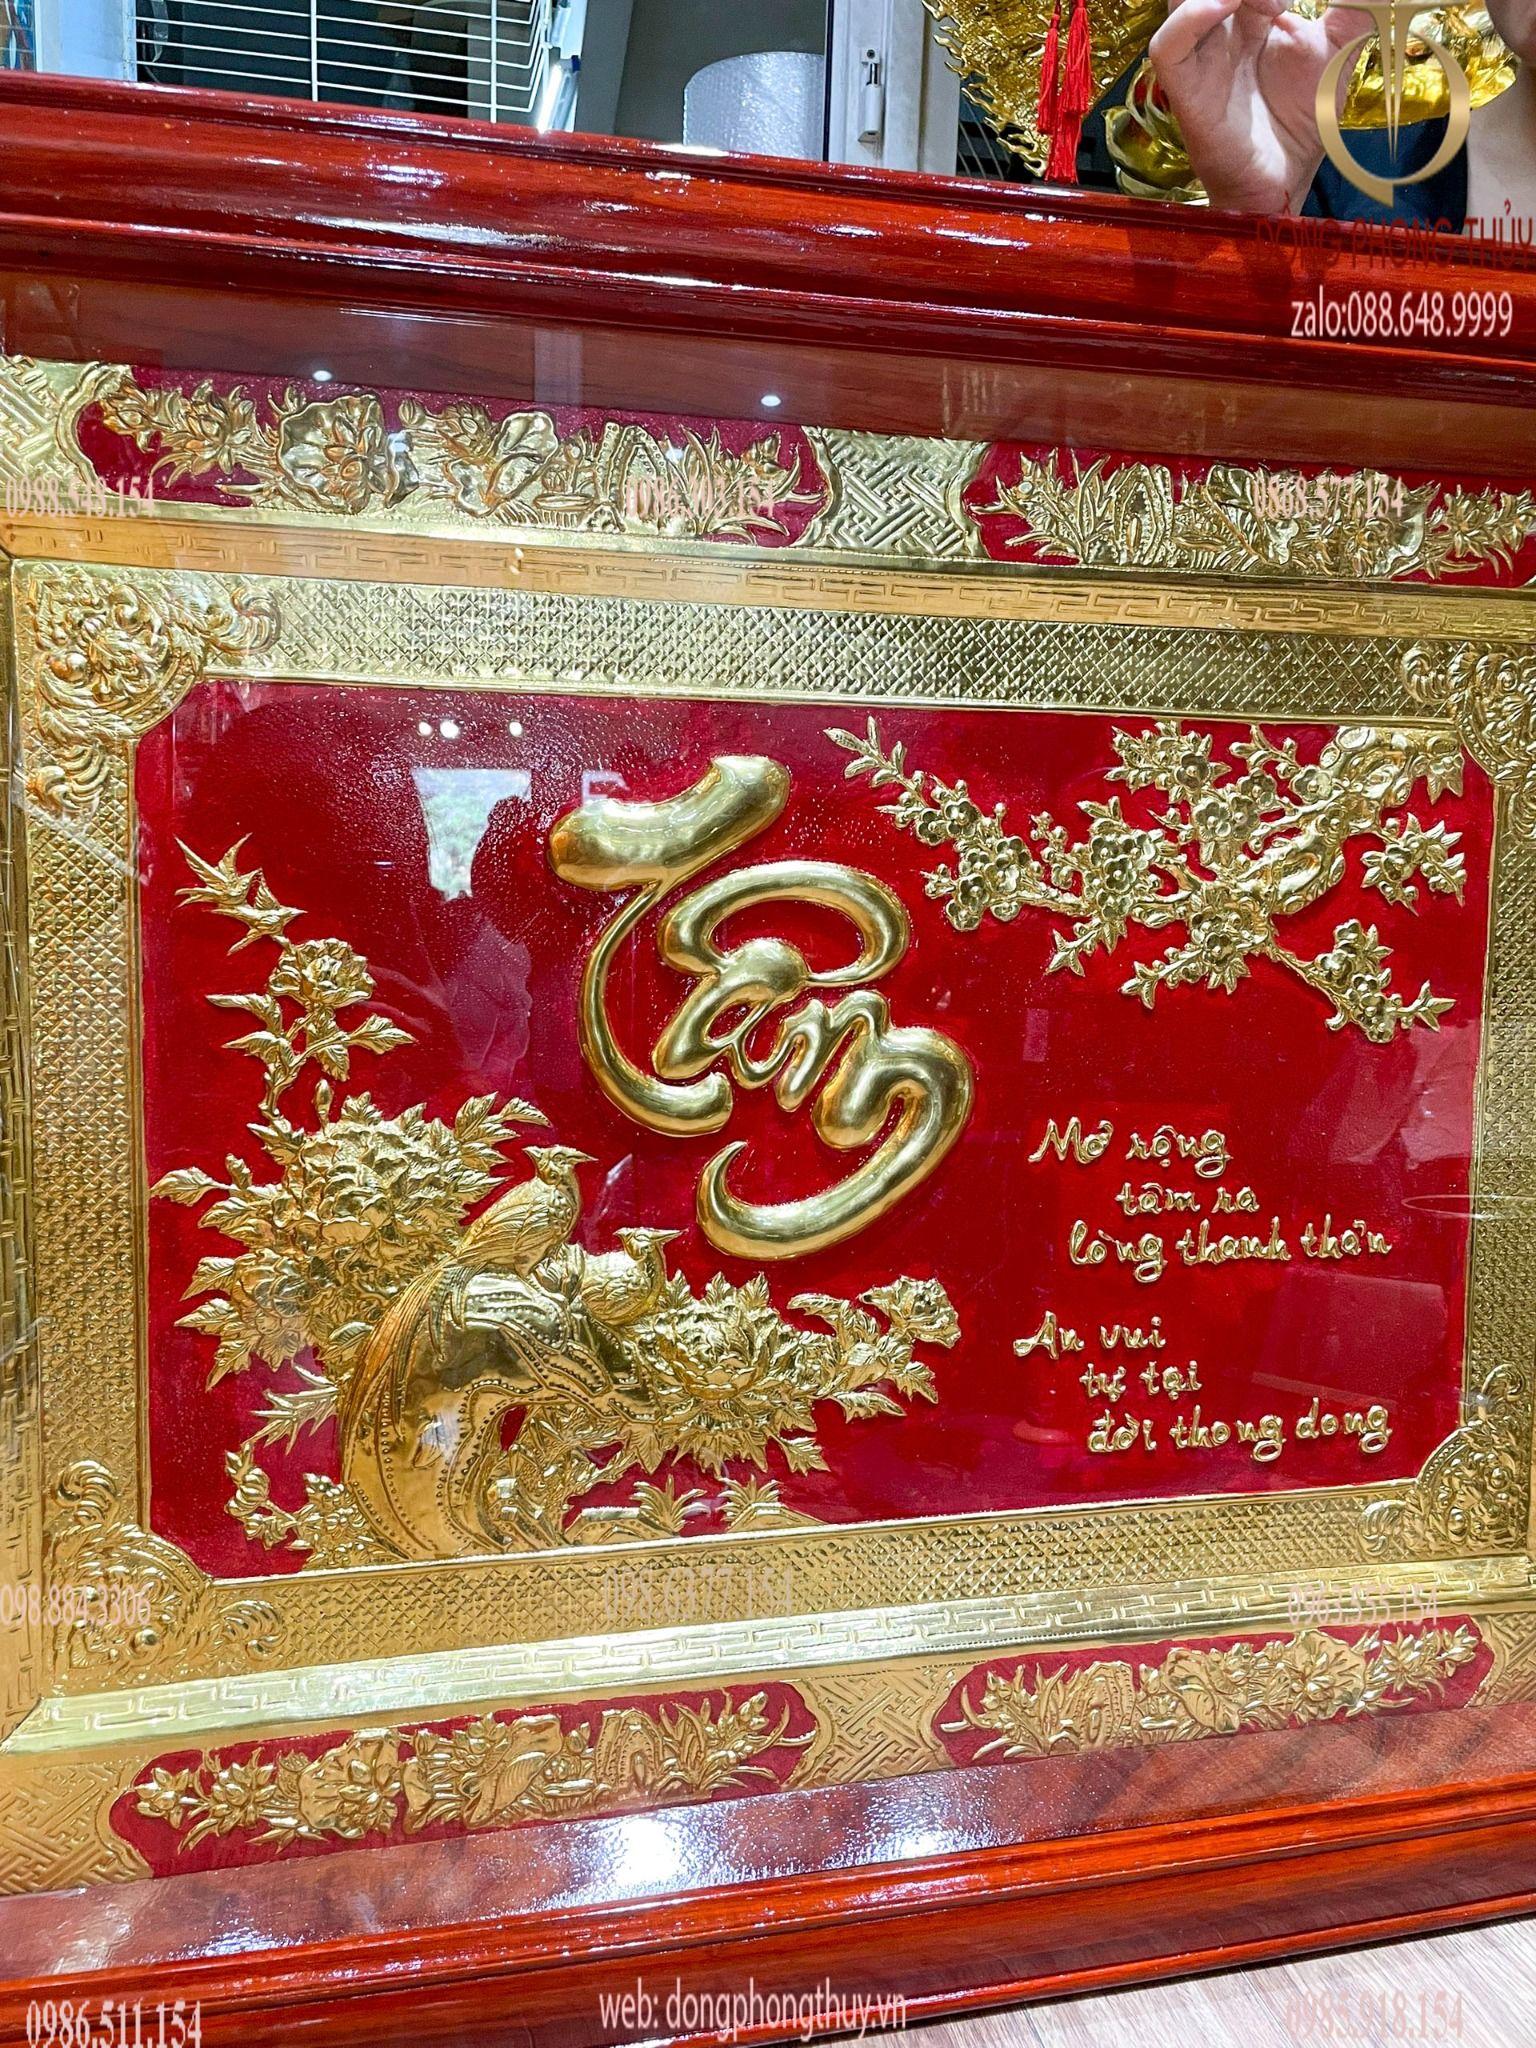 ĐỒNG PHONG THỦY
zalo:088.648.9999
0988.548.154
0986.303.154
0868.577.154
Tâm
Mở rộng
tâm ra
lòng thanh thản
An vui
tự tại
đời thong dong
098.884.3306
098.6377.154
0963.555.154
0986.511.154
web: dongphongthuy.vn
0985.918.154